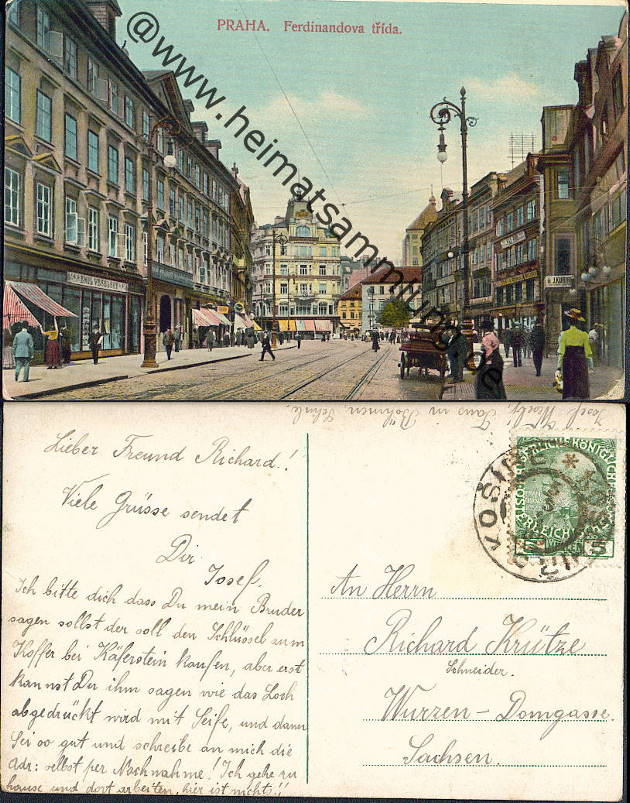 PRAHA. Ferdinandova třída.
@www.heimatsammlung.de
Josef in Böhmen
Lieber Freund Richard!
Viele Grüsse sendet
Dir
Josef.
Ich bitte dich dass Du mein Bruder
sagen sollst der soll den Schlüssel zum
Koffer bei Käferstein kaufen, aber erst
kannst Du ihm sagen wie das Loch
abgedrückt wird mit Seife, und dann
Sei so gut und schreibe an mich die
Adr: selbst per Nachnahme! Ich gehe zu
hause und dort arbeiten, hier ist nichts!!
An Herrn
Richard Krütze
Schneider.
Wurzen - Domgasse.
Sachsen.
5